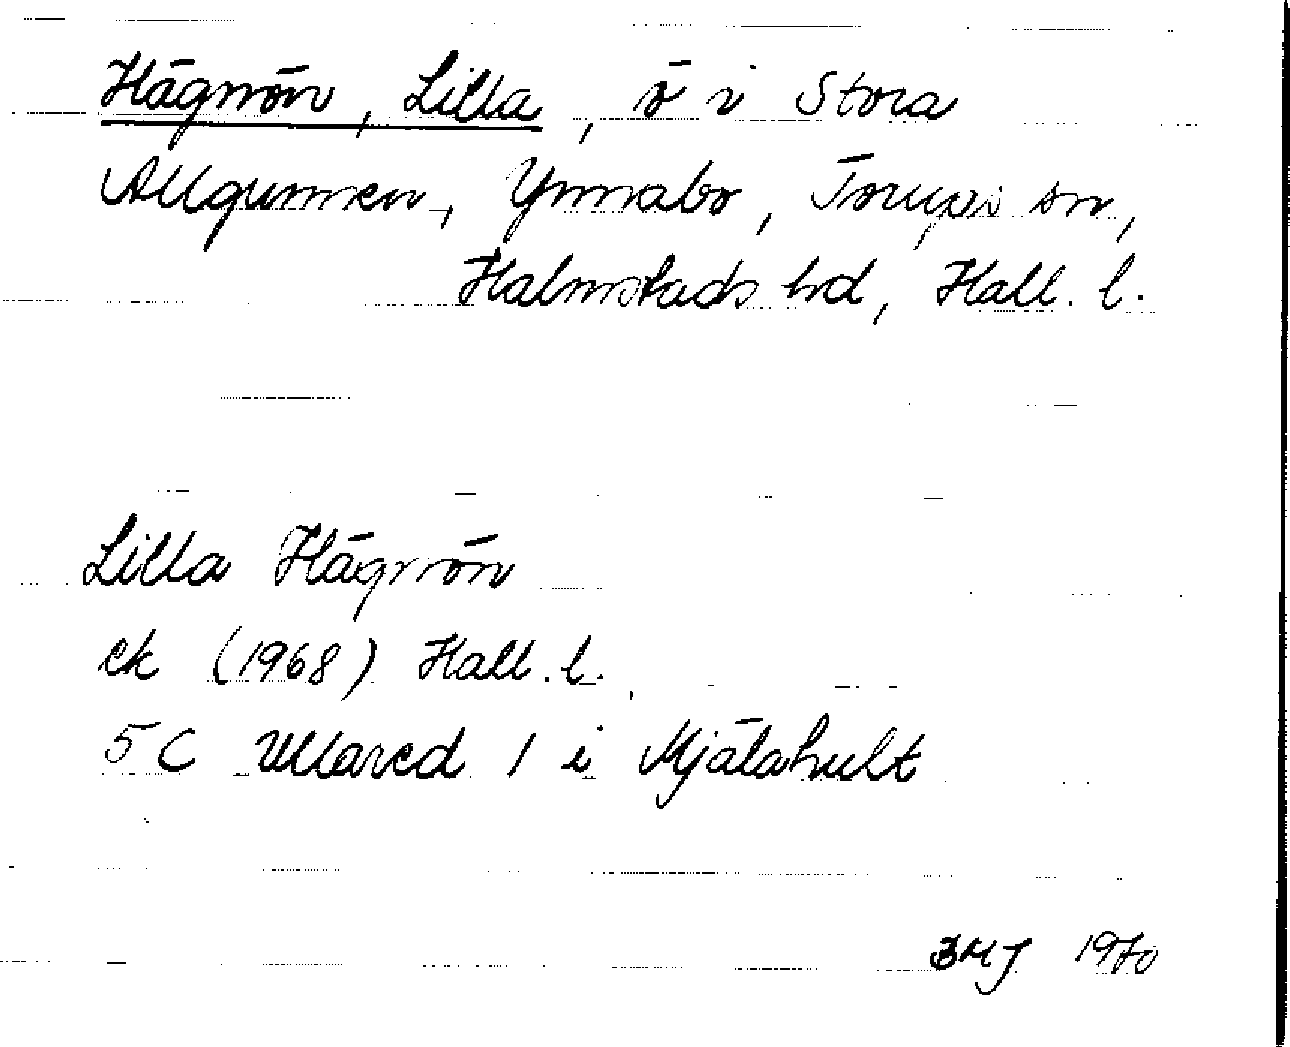 Hägnön, Lilla, ö i Stora
Allgunnen, Ynnabo, Torups sn,
Halmstads hd, Hall. l.
Lilla Hägnön
ek (1968) Hall. l.
5C Ullared 1 i Mjälahult
BMJ 1970